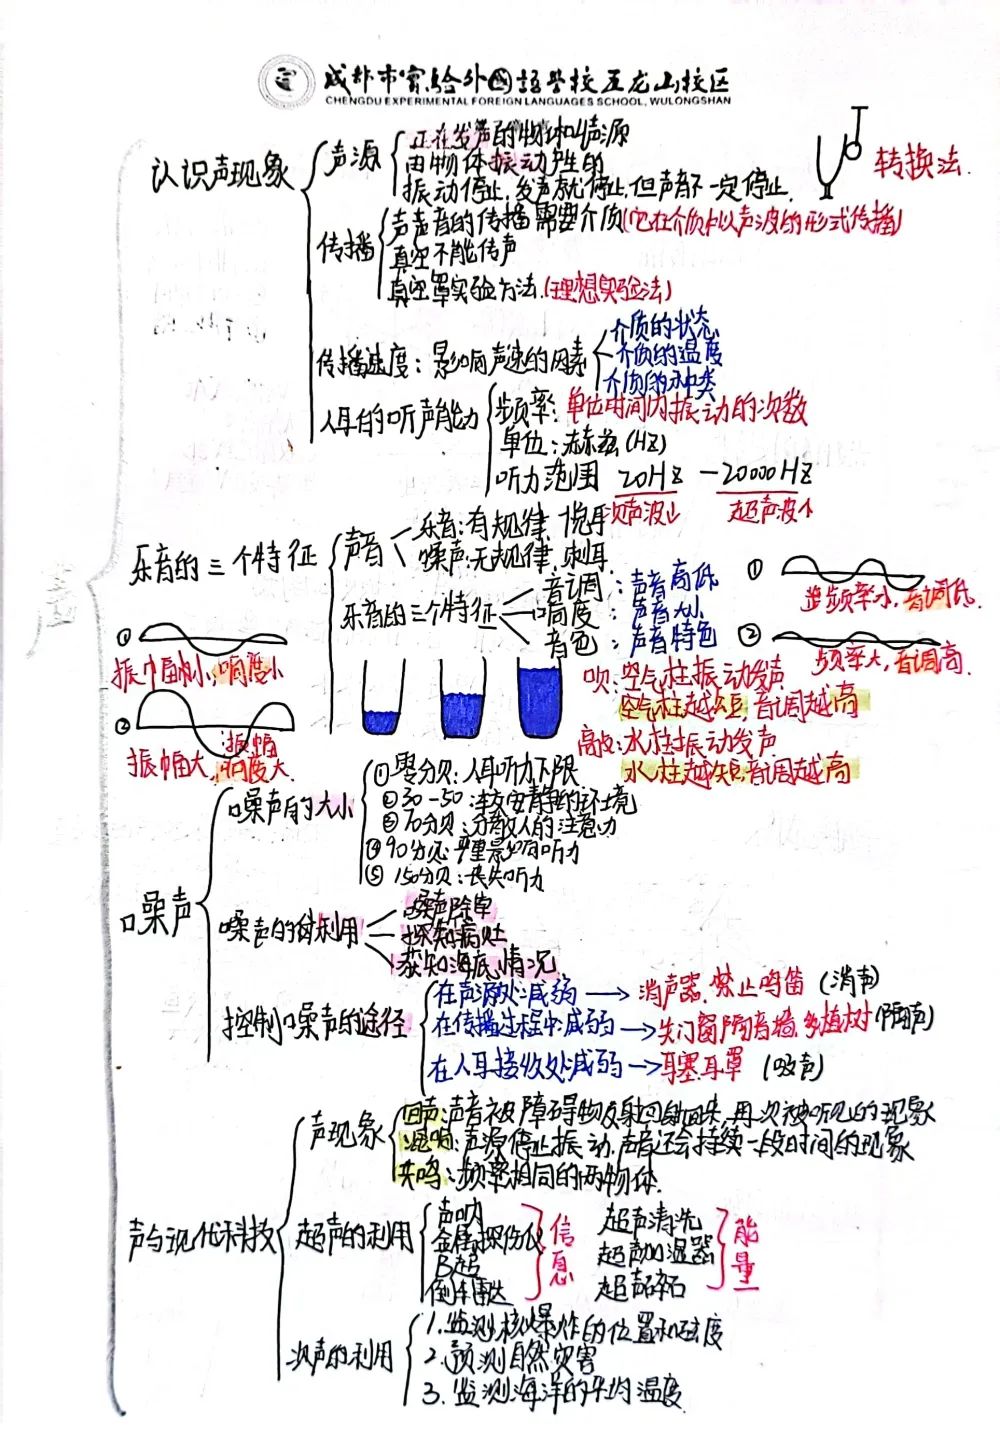 成都市实验外国语学校五龙山校区
CHENGDU EXPERIMENTAL FOREIGN LANGUAGES SCHOOL, WULONGSHAN
认识声现象
声源
正在发声的物体叫声源
由物体振动产生的
振动停止,发声就停止,但声音不一定停止.
转换法.
传播
声声音的传播需要介质(它在介质中以声波的形式传播)
真空不能传声
真空罩实验方法.(理想实验法)
传播速度:影响声速的因素
介质的状态
介质的温度
介质的种类
人耳的听声能力
频率:单位时间内振动的次数
单位:赫兹(HZ)
听力范围 20HZ —20000HZ
次声波↓ 超声波↑
乐音的三个特征
声音
乐音:有规律、悦耳
噪声:无规律,刺耳.
乐音的三个特征
音调:声音高低
响度:声音大小
音色:声音特色
①
频率小,音调低.
②
频率大,音调高.
①
振幅小,响度小
②
振幅大,响度大.
振幅
吹:空气柱振动发声
空气柱越短,音调越高
高攴:水柱振动发声
水柱越短,音调越高
噪声
噪声的大小
①零分贝:人耳听力下限
②30-50:较安静的环境
③70分贝:分散人的注意力
④90分贝:严重影响听力
⑤150分贝:丧失听力
噪声的利用
噪声除草
探知病灶
获知海底情况
控制噪声的途径
在声源处减弱→消声器.禁止鸣笛 (消声)
在传播过程中减弱→关门窗隔音墙,多植树(隔声)
在人耳接收处减弱→耳塞.耳罩 (吸声)
声与现代科技
声现象
回声:声音被障碍物反射回来,再次被听见的现象
混响:声源停止振动,声音还会持续一段时间的现象
共鸣:频率相同的两物体.
超声的利用
声呐
金属探伤仪
B超
倒车雷达
信息
超声清洗
超声加湿器
超声碎石
能量
次声的利用
1.监测核爆炸的位置和强度
2.预测自然灾害
3.监测海洋的平均温度.